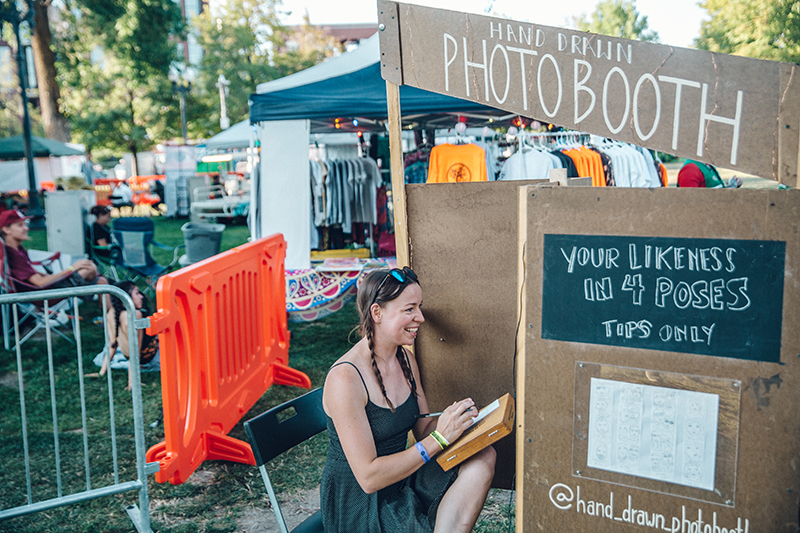 HAND DRAWN
PHOTOBOOTH
YOUR LIKENESS
IN 4 POSES
TIPS ONLY
@hand_drawn_photobooth